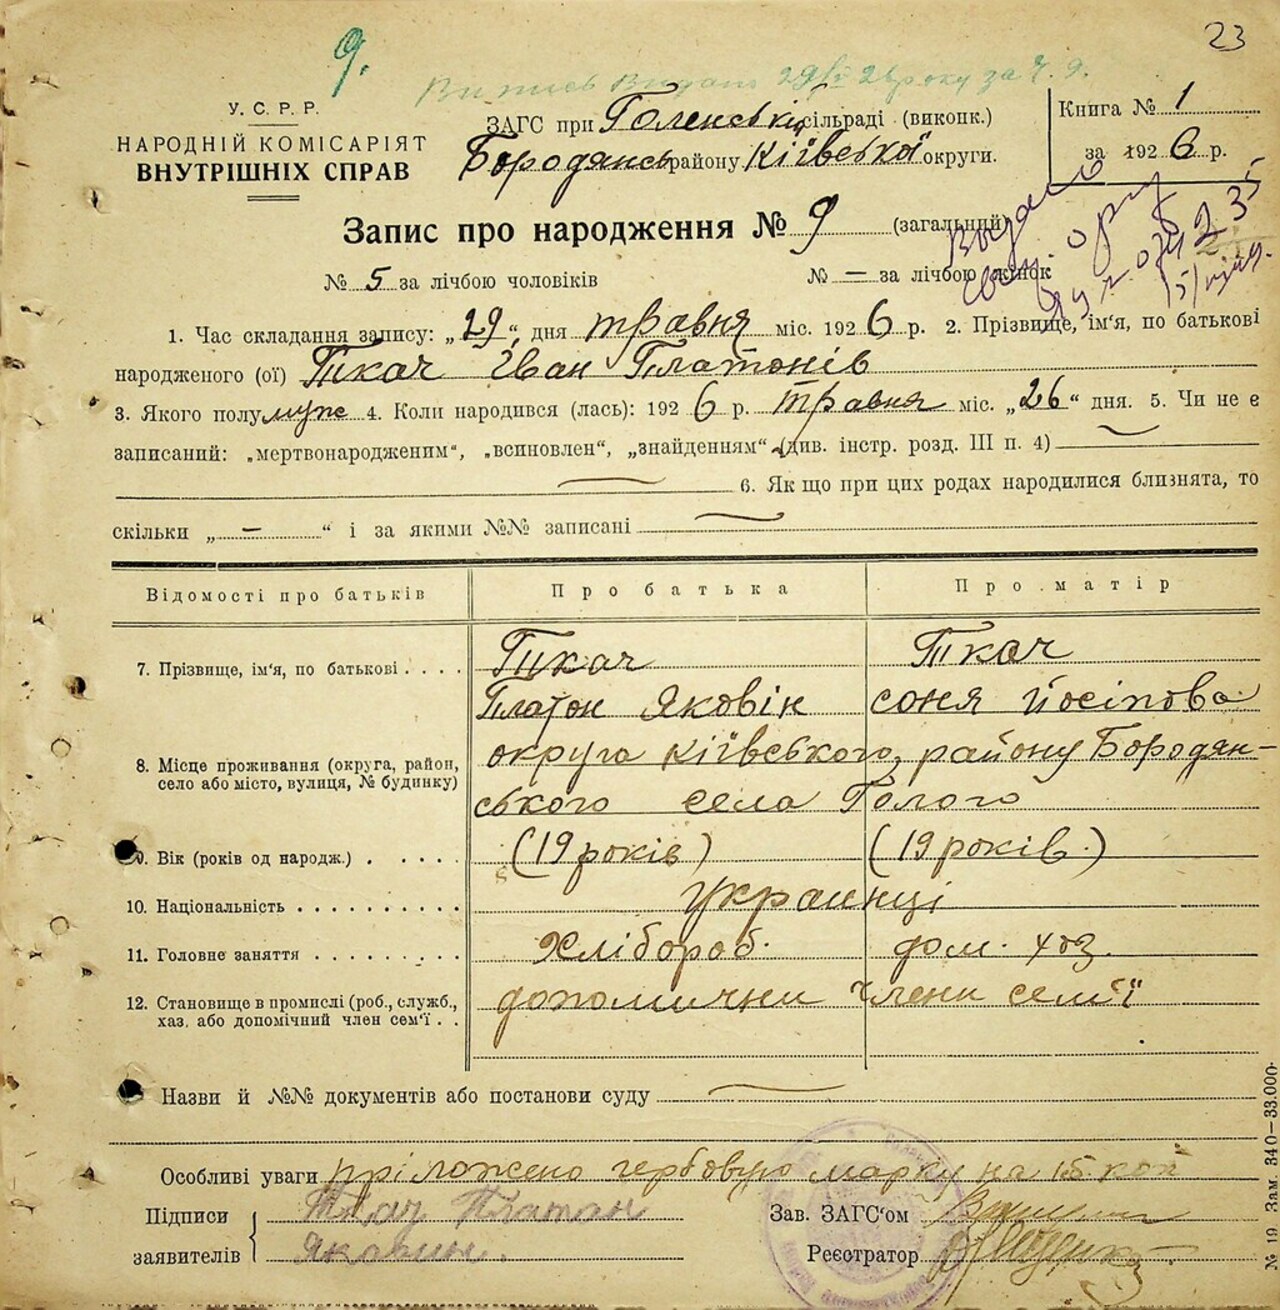 23
9.
Витись Видано 29/V 26 року за ч. 9.
У. С. Р. Р.
НАРОДНІЙ КОМІСАРІЯТ
ВНУТРІШНІХ СПРАВ
ЗАГС при Голенські сільраді (виконк.)
Бородянськ району Київської округи.
Книга № 1
за 1926 р.
Запис про народження № 9 (загальний)
№ 5 за лічбою чоловіків № — за лічбою жінок
1. Час складання запису: „29“ дня травня міс. 1926 р. 2. Прізвище, ім'я, по батькові
народженого (ої) Ткач Іван Платонів
3. Якого полу муже 4. Коли народився (лась): 1926 р. травня міс. „26“ дня. 5. Чи не є
записаний: „мертвонародженим“, „всиновлен“, „знайденням“ (див. інстр. розд. III п. 4)
6. Як що при цих родах народилися близнята, то
скільки „ — “ і за якими №№ записані
Відомості про батьків Про батька Про матір
7. Прізвище, ім'я, по батькові . . . . Ткач Ткач
Платон Яковін соня Йосіпова
8. Місце проживання (округа, район, округа Київського, району Бородян-
село або місто, вулиця, № будинку) ського села Голого
9. Вік (років од народж.) . . . . . (19 років) (19 років.)
10. Національність . . . . . . . . . украинці
11. Головне заняття . . . . . . . . Хлібороб. дом. хоз.
12. Становище в промислі (роб., служб., допомични члени сем'ї
хаз. або допомічний член сем'ї . .
Назви й №№ документів або постанови суду
Особливі уваги пріложено гербовую марку на 15 коп
Підписи Ткач Платан
заявителів Яковин.
Зав. ЗАГС'ом
Реєстратор
№ 19 Зам. 340—33.000.